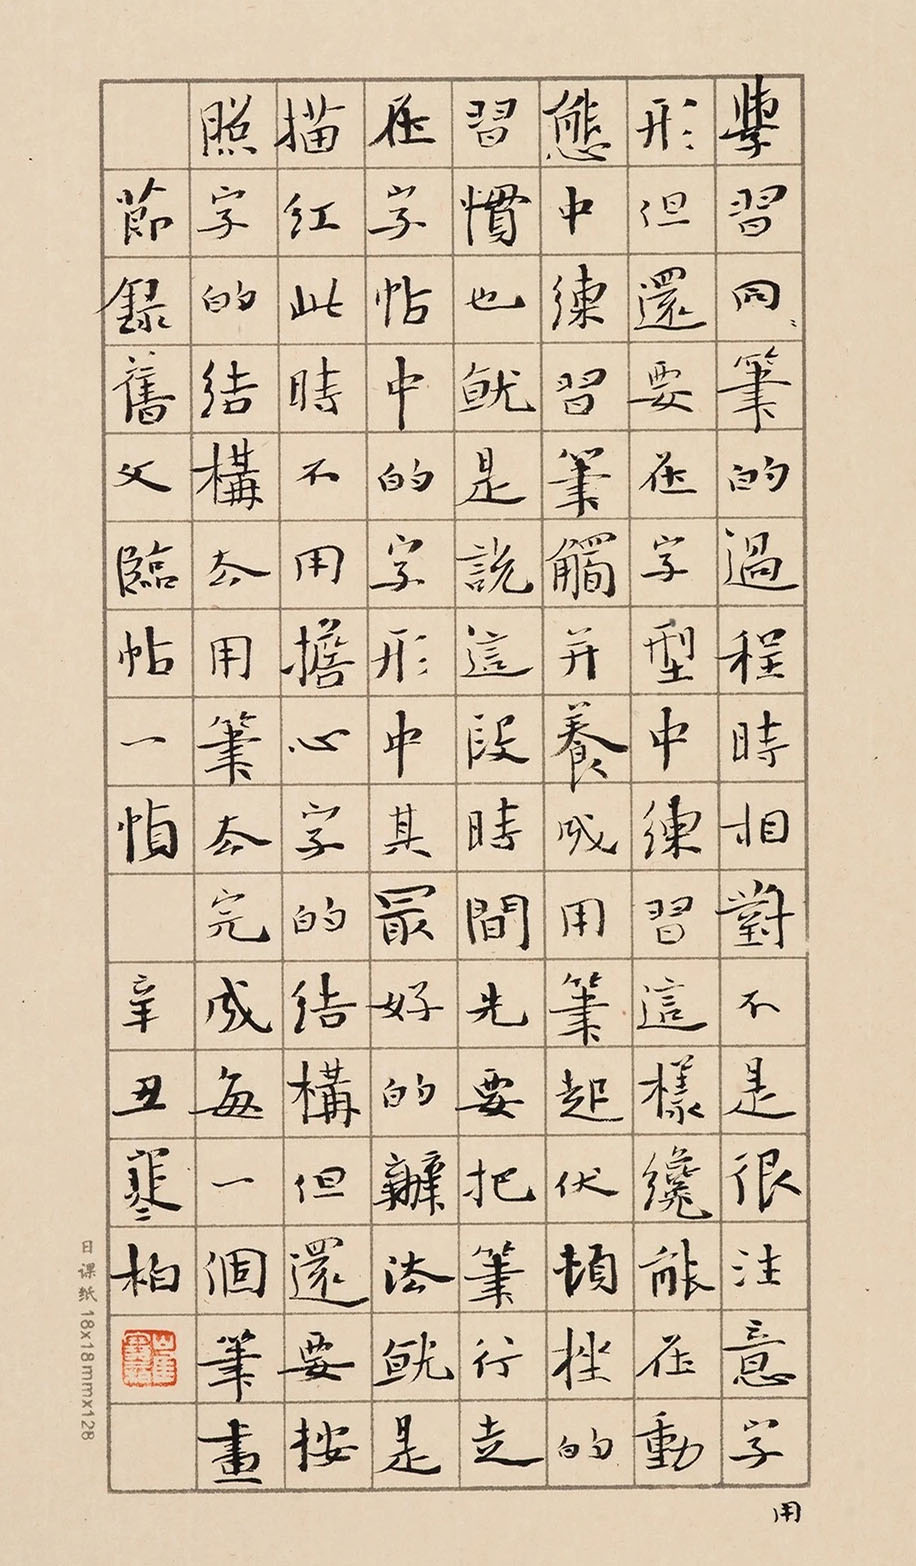 學習同筆的過程時相對不是很注意字
形但還要在字型中練習這樣纔能在動
態中練習筆觸并養成用筆起伏頓挫的
習慣也就是說這段時間先要把筆行走
在字帖中的字形中其最好的辦法就是
描紅此時不用擔心字的結構但還要按
照字的結構去用筆去完成每一個筆畫
節錄舊文臨帖一幀 辛丑寒柏
用
日课纸 18x18mmx128